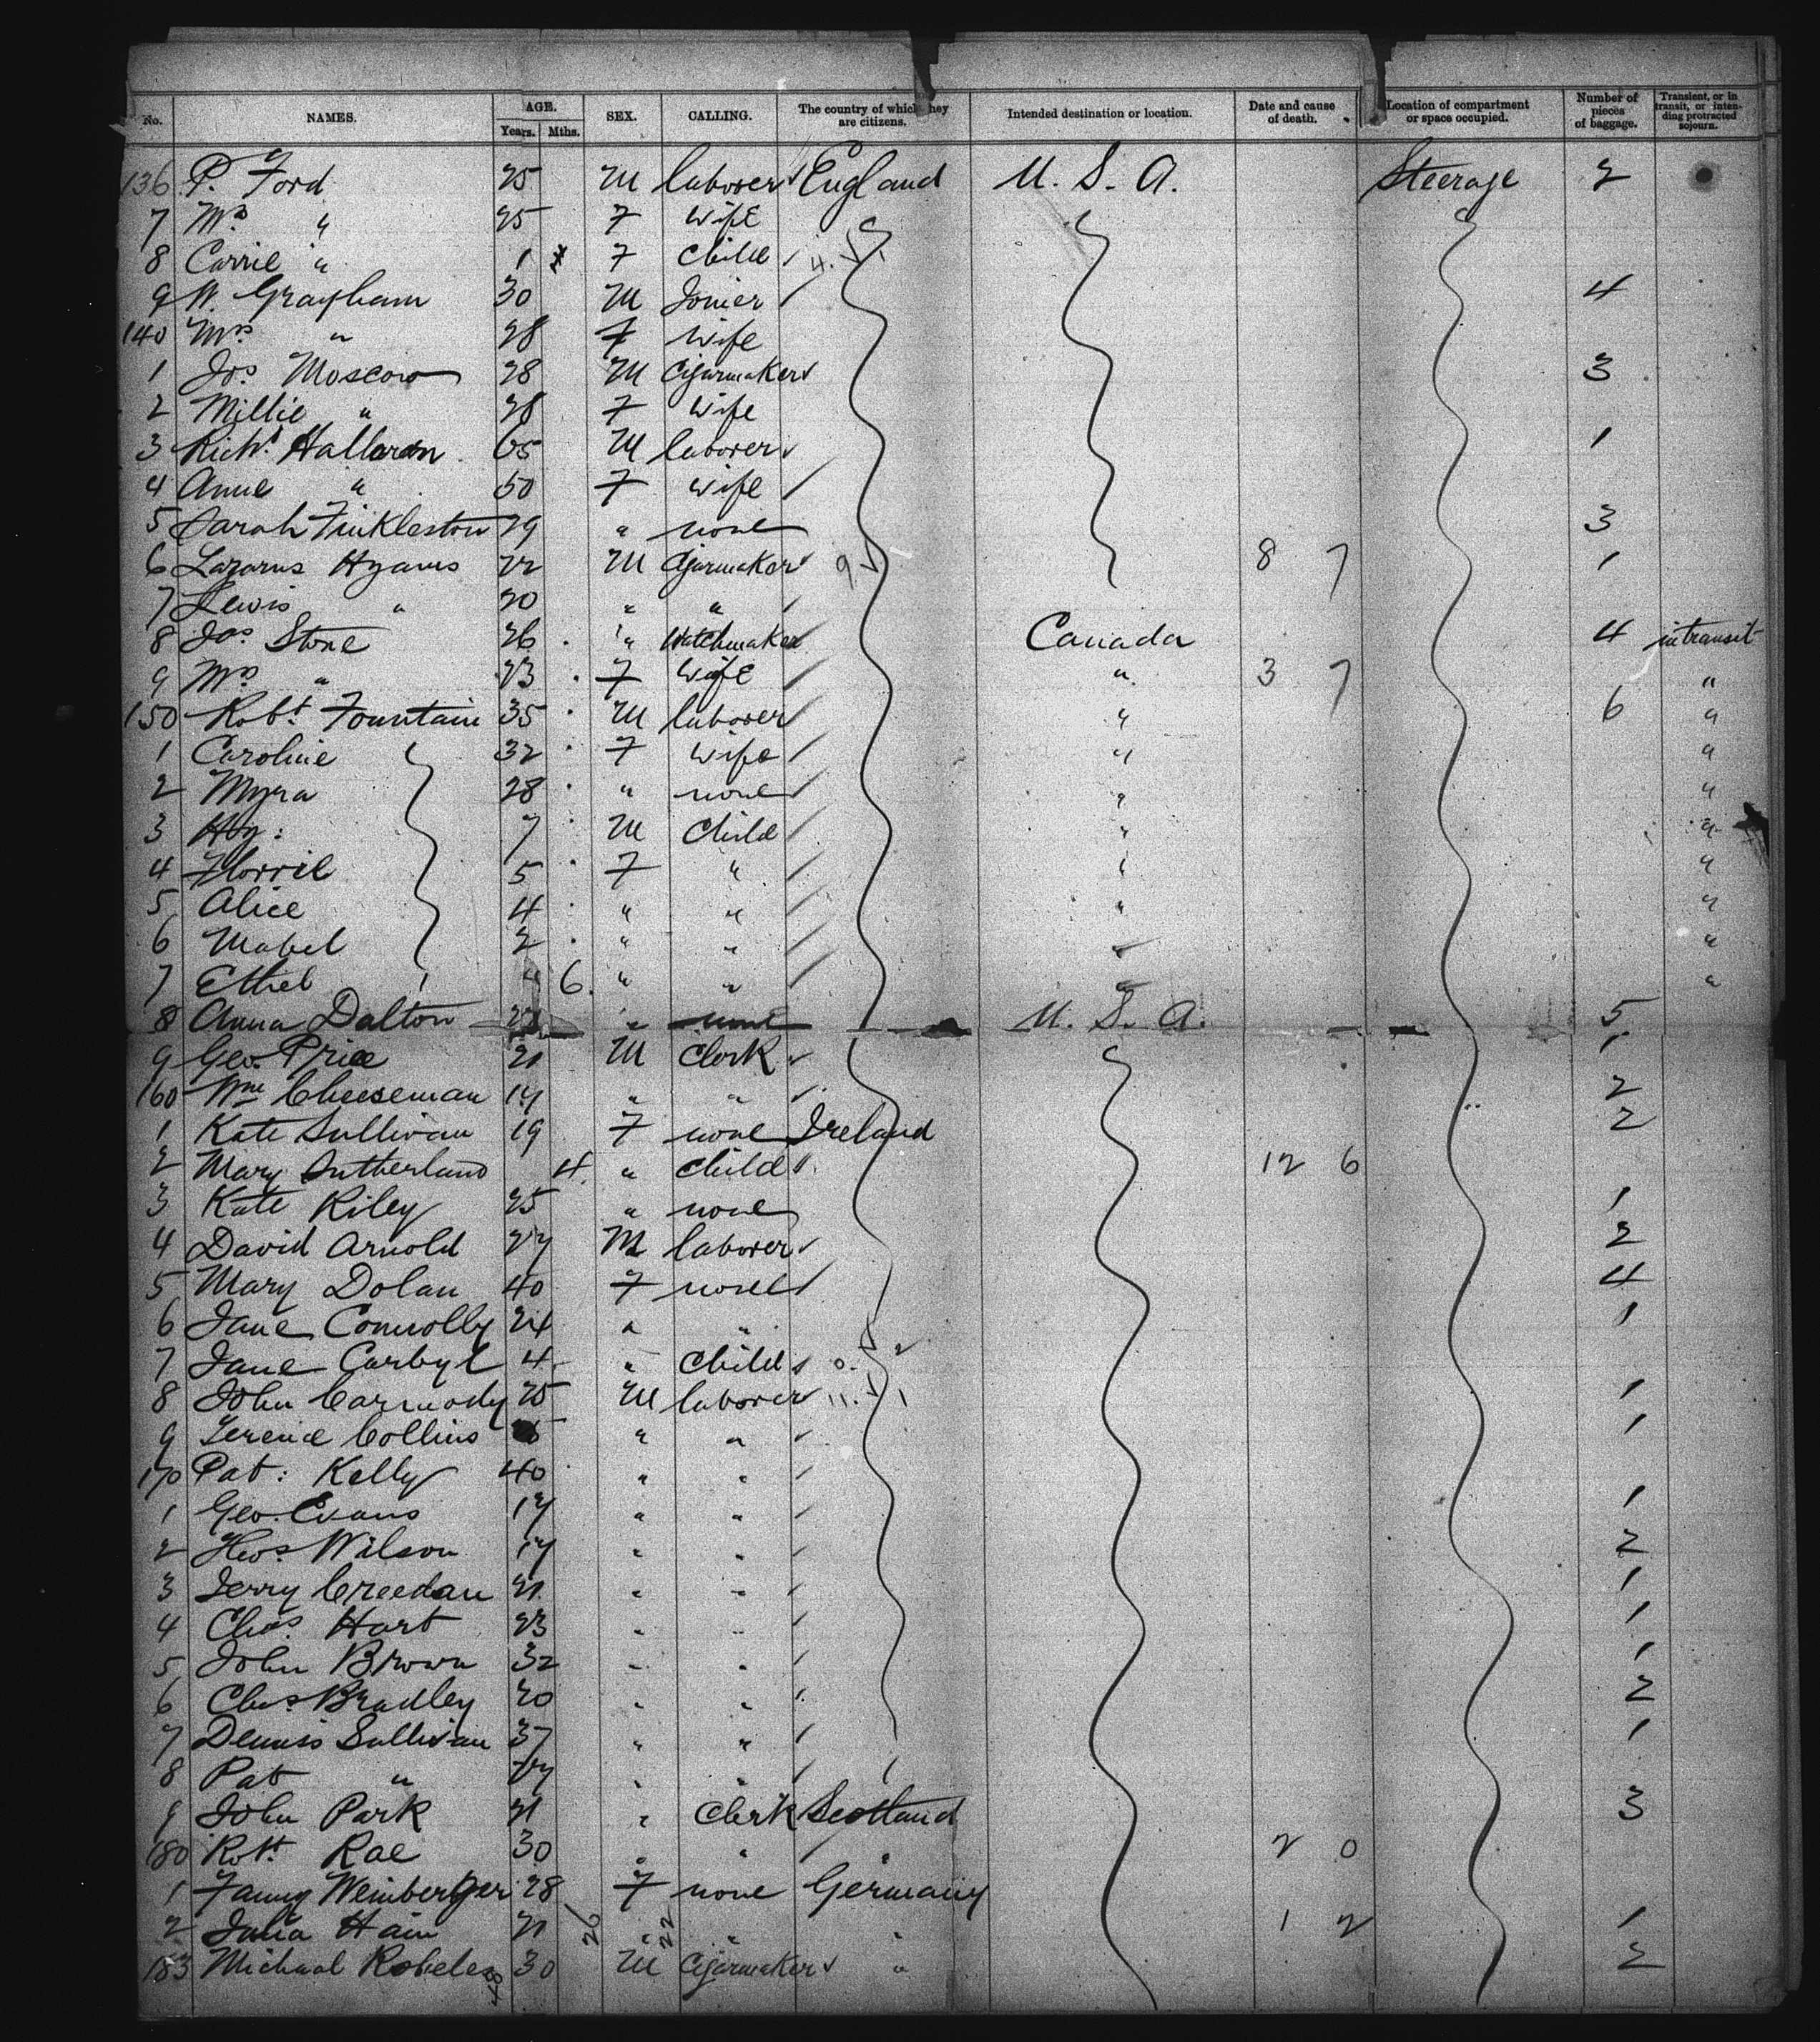 No. NAMES. AGE. Years. Mths. SEX. CALLING. The country of which they are citizens. Intended destination or location. Date and cause of death. Location of compartment or space occupied. Number of pieces of baggage. Transient, or in transit, or intending protracted sojourn.
136 P. Ford 25 M laborer England U. S. A. Steerage 2
7 Mrs " 25 F wife
8 Carrie " 1 F Child 4.
9 W. Grayham 30 M Joiner 4
140 Mrs " 28 F wife
1 Jos Moscow 28 M Cigarmaker 3
2 Millie " 28 F wife
3 Richd Halloran 65 M laborer 1
4 Anne " 50 F wife
5 Sarah Finkleston 29 " none 3
6 Lazarus Hyams 22 M Cigarmaker 9 8 7 1
7 Lewis " 20 " "
8 Jas Stone 26 " Watchmaker Canada 4 in transit
9 Mrs " 23 F wife " 3 7 "
150 Robt Fountain 35 M laborer " 6 "
1 Caroline 32 F wife " "
2 Myra 28 " none " "
3 Hy: 7 M Child " "
4 Florrie 5 F " " "
5 Alice 4 " " " "
6 Mabel 2 " " " "
7 Ethel 6 " " " "
8 Anna Dalton " none U. S. A. 5
9 Geo. Price 21 M Clerk 1
160 Wm Cheeseman 17 " " 2
1 Kate Sullivan 19 F none Ireland 2
2 Mary Sutherland 4 " child 12 6
3 Kate Riley 25 " none 1
4 David Arnold 27 M laborer 2
5 Mary Dolan 40 F none 4
6 Jane Connolly 24 " " 1
7 Jane Carbyl 4 " Child 0. 2
8 John Carmody 25 M laborer 11. 1 1
9 Terence Collins " " 1
170 Pat: Kelly 40 " "
1 Geo. Evans 17 " " 1
2 Thos Wilson 17 " " 2
3 Jerry Creedan 21 " " 1
4 Chas Hart 23 " " 1
5 John Brown 32 " " 1
6 Chas Bradley 20 " " 2
7 Dennis Sullivan 37 " " 1
8 Pat " 27 " "
9 John Park 21 " Clerk Scotland 3
180 Robt Rae 30 " " " 2 0
1 Fanny Weinberger 28 F none Germany
2 Julia Hain 21 " " " 1 2 1
183 Michael 30 M Cigarmaker " 2
48 26 22